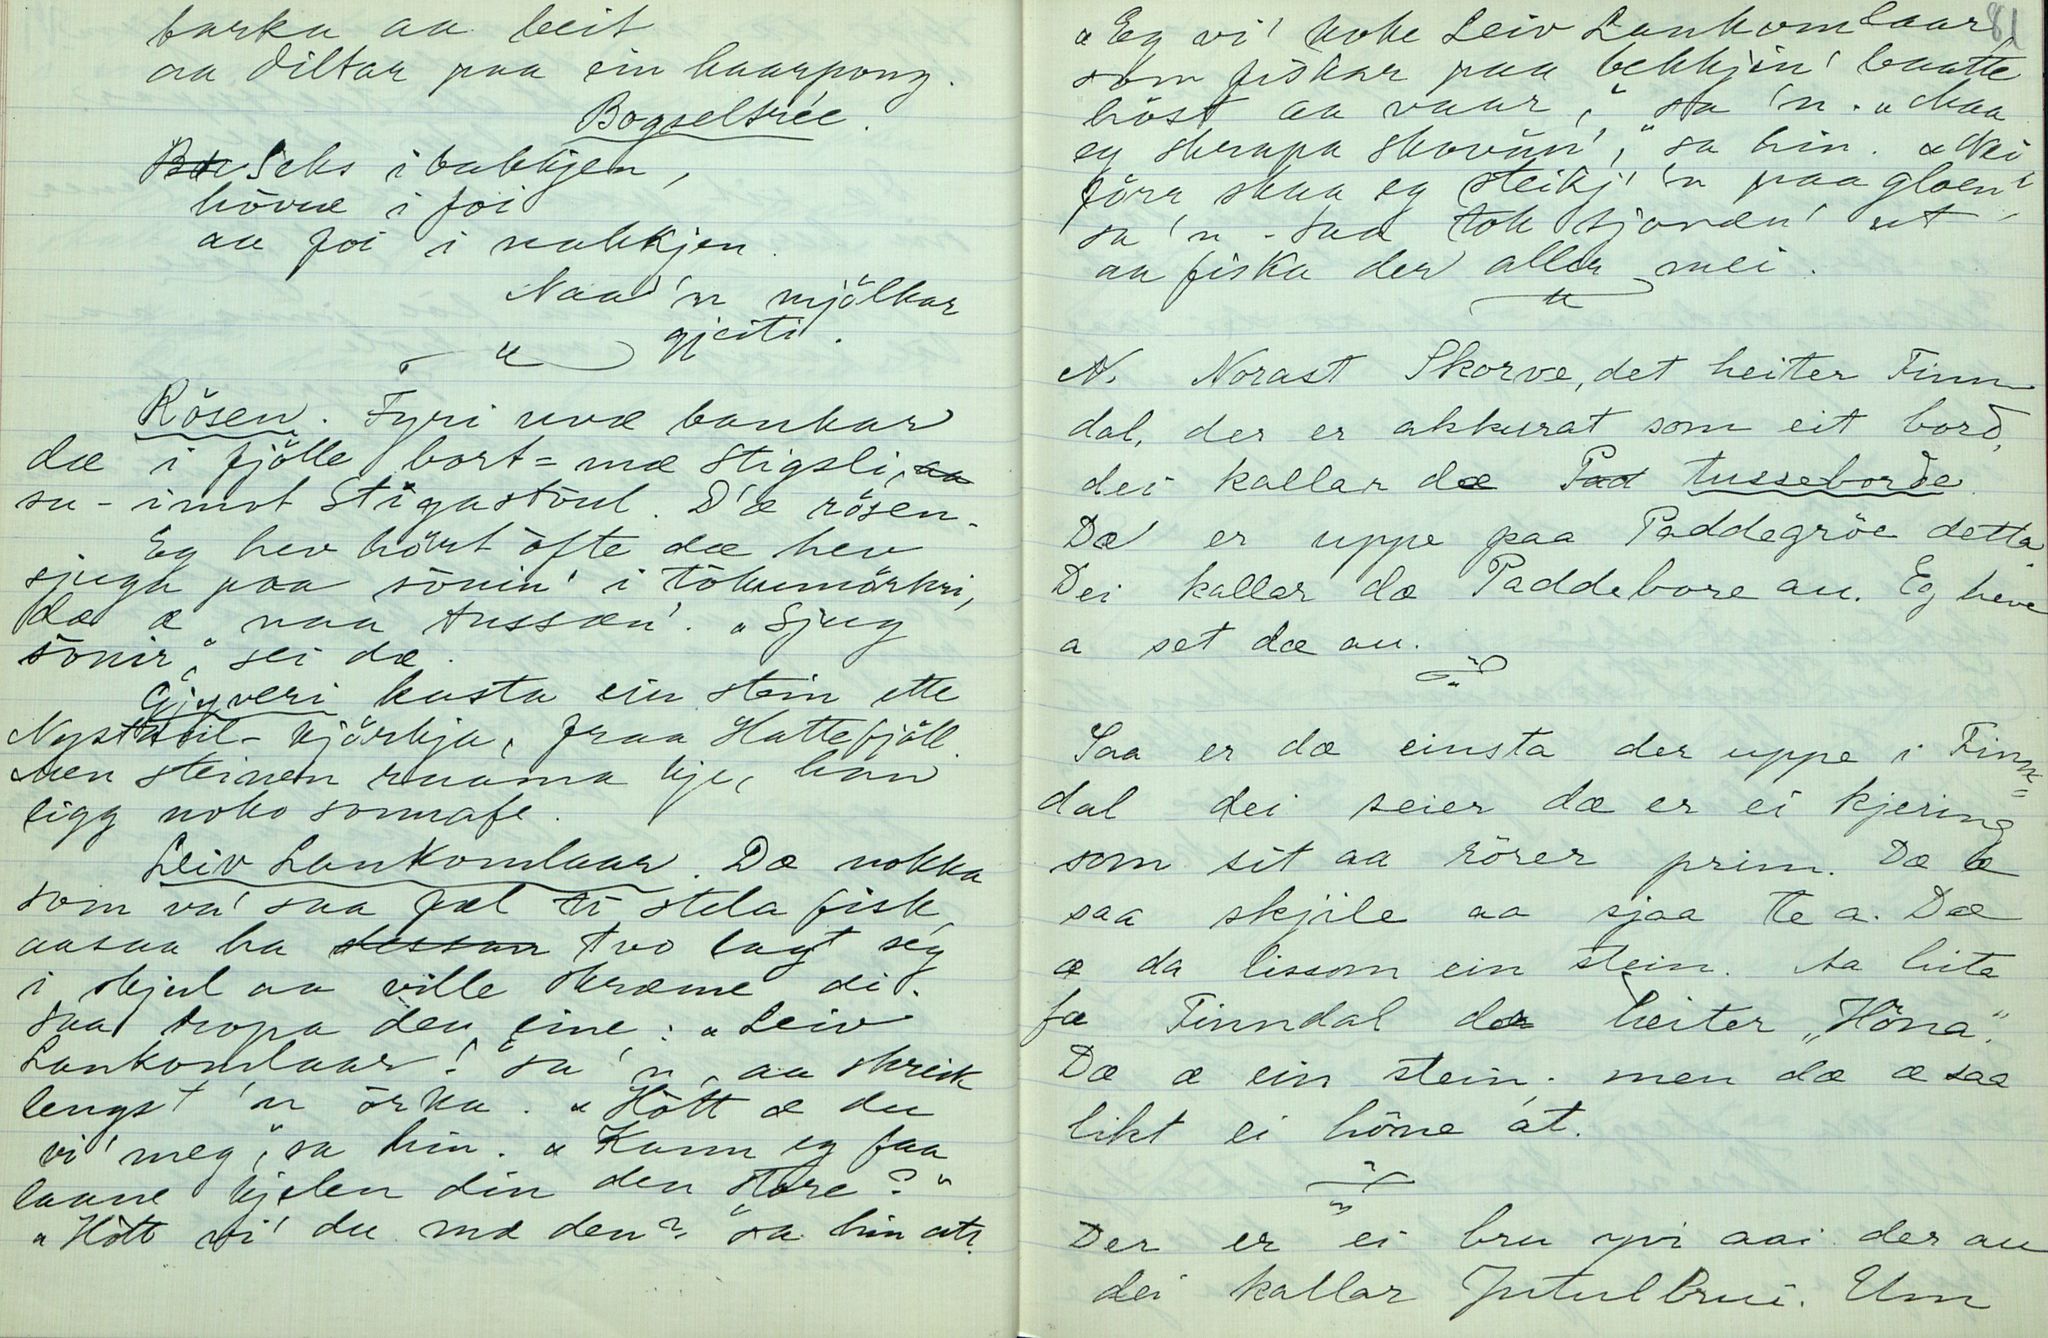 barka aa beit
aa diltar paa ein haarpong.
Bogseltrée.
Seks i bakkjen,
hövue i foi
aa foi i nakkjen.
Naa'n mjölkar
gjeiti.
Rösen. Fyri uvæ bankar
dæ i fjölle bort-mæ Stigsli, aa
su-imot Stigastöul. D'æ rösen.
Eg hev hört öfte dæ hev
sjuga paa sönin' i tökumörkri,
dæ æ naa tussæn'. „Sjug
sönir," sei dæ.
Gjyveri kasta ein stein ette
Nystaul-kjörkja, fraa Hattefjöll.
Men steinen raama kje, han
ligg noko sonnafe.
Leiv Lankomlaar. Dæ nokka
som va' saa fæl ti stela fisk,
aasaa ha tvo lagt seg
i skjul aa ville skræme di.
Saa ropa den eine: „Leiv
Lankomlaar!" sa 'n, aa skreik
lengst 'n örka. „Hött æ du
vi' meg," sa hin. „Kann eg faa
laane kjelen din den store?"
„Hött vi' du mæ den?" sa hin att.
81
„Eg vi' koke Leiv Lankomlaar,
som fiskar paa bekkjin' baatte
höst aa vaar," sa 'n. „Maa
eg skrapa skovün'," sa hin. „Nei
förr skaa eg steikj' 'n paa gloen'",
sa 'n - Saa tok tjoven' ut
aa fiska der aller mei.
N. Norast Skorve, det heiter Finn
dal, der er akkurat som eit bord,
dei kallar dæ Pad tusseborde.
Dæ er uppe paa Paddegröe detta.
Dei kallar dæ Paddebore au. Eg heve
a set dæ au.
Saa er dæ einsta der uppe i Finn=
dal dei seier dæ er ei kjering
som sit aa rörer prim. Dæ æ
saa skjile aa sjaa te a. Dæ
æ da lissom ein stein. Aa lita
fæ Finndal dær heiter „Höna".
Dæ æ ein stein, men dæ æ saa
likt ei höne át.
Der er ei bru yvi aai der au
dei kallar Jutulbrui. Um